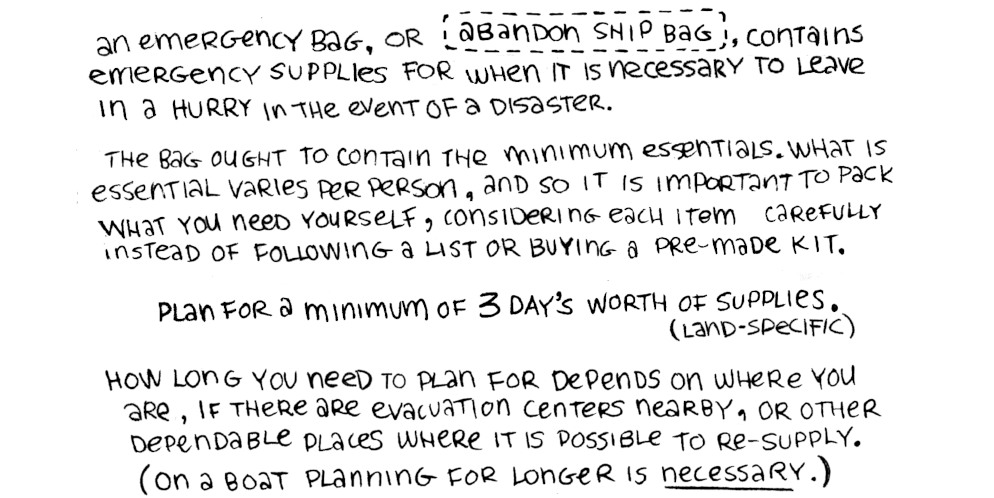 an emergency bag, or abandon ship bag, contains
emergency supplies for when it is necessary to leave
in a hurry in the event of a disaster.
The bag ought to contain the minimum essentials. What is
essential varies per person, and so it is important to pack
what you need yourself, considering each item carefully
instead of following a list or buying a pre-made kit.
Plan for a minimum of 3 day's worth of supplies.
(land-specific)
How long you need to plan for depends on where you
are, if there are evacuation centers nearby, or other
dependable places where it is possible to re-supply.
(on a boat planning for longer is necessary.)